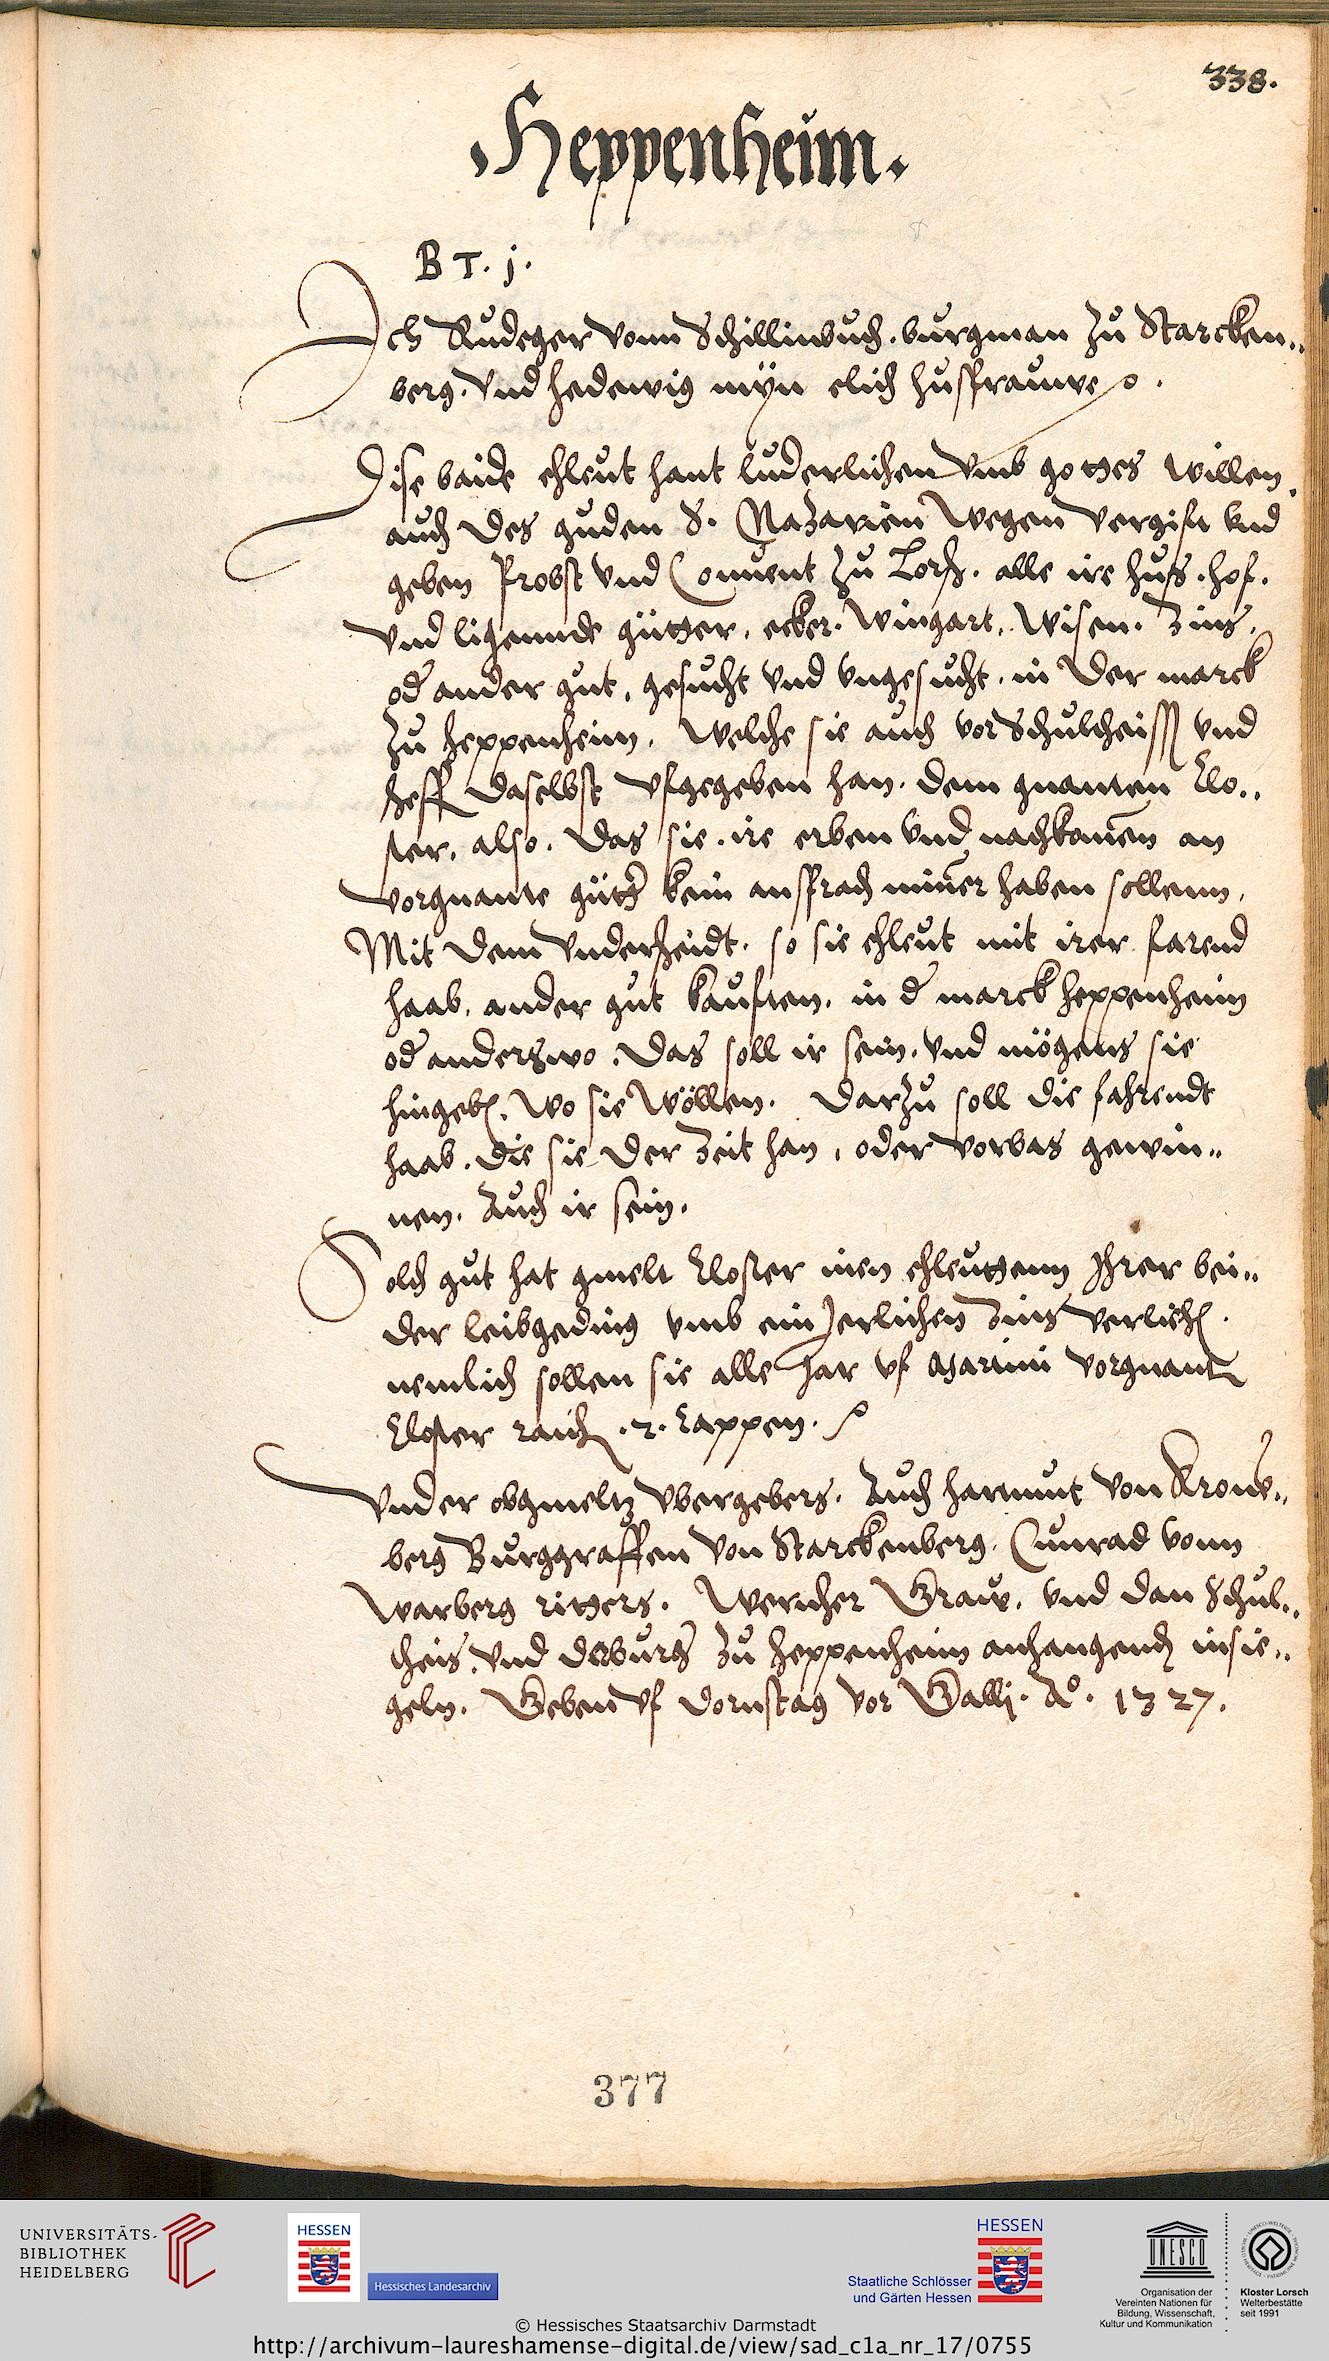 338.
Heppenheim.
B T. j.
Ich Rudeger vonn Schilliwuch. burgman zu Starcken..
berg. vnd hedewig myn elich husfrauwe.
Dise baide ehleut hant luderlichen vmb gottes willen,
auch des guden S. Nazarien wegen vergift vnd
geben Probst vnd Conuent zu Lorsch. alle ire hus. hof.
vnd ligennde gütter, ecker. Wingart, Wisen. Zins,
od ander gut, gesucht vnd vngesucht. in der marck
zu heppenheim. Welche sie auch vor Schultheiss vnd
heff daselbst vfgegeben han. dem gnanten Clo..
ster, also. das sie. ire erben vnd nachkomen an
vorgnante güter kein ansprach nimer haben sollenn,
Mit dem vnderscheidt. so sie ehleut mit irer farend
haab, ander gut kauften. in d marck heppenheim
od anderswo. Das soll ir sein. vnd mögens sie
hingeben. wo sie wöllen. Darzu soll die fahrendt
haab. die sie der Zeit han, oder vorbas gewin..
nen. Auch ir sein.
Solch gut hat gmelt Closter inen ehleuttenn Ihrer bei..
der leibgeding vmb ein Jerlichen Zins verlichen.
nemlich sollen sie alle Jar vf Martini vorgnant
Closter raich. 2. Cappen.
Vnder obgmeltz vbergebers. Auch hartmut von Kronb..
berg Burggraffen von Starckenberg. Cunrad vonn
Warberg ritters. Wernher Graw. vnd dan Schul..
theis. vnd der burger zu heppenheim anhangend insie..
geln. Geben vf dornstag vor Galli. Ao. 1327.
377
UNIVERSITÄTS-
BIBLIOTHEK
HEIDELBERG
HESSEN
Hessisches Landesarchiv
HESSEN
Staatliche Schlösser
und Gärten Hessen
UNESCO
Organisation der
Vereinten Nationen für
Bildung, Wissenschaft,
Kultur und Kommunikation
Kloster Lorsch
Welterbestätte
seit 1991
© Hessisches Staatsarchiv Darmstadt
http://archivum-laureshamense-digital.de/view/sad_c1a_nr_17/0755